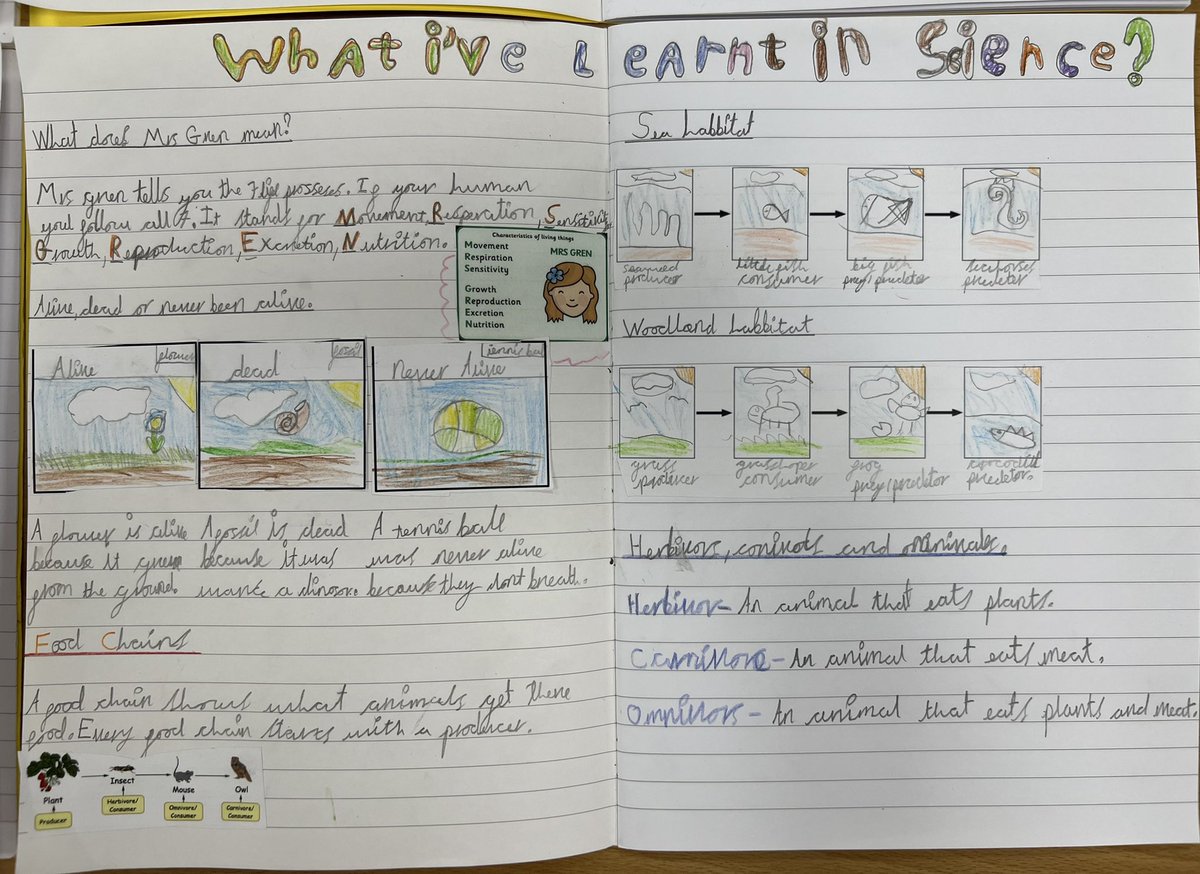 What i've Learnt in Science?
What does Mrs Gren mean?
Mrs gren tells you the 7 life prosseses. If your human
you'll follow all 7. It stands for Movement, Resperation, Sensitivity
Growth, Reproduction, Excretion, Nutrition.
Characteristics of living things
MRS GREN
Movement
Respiration
Sensitivity
Growth
Reproduction
Excretion
Nutrition
Alive, dead or never been alive.
Alive
flower
dead
fossil
Never Alive
tennis ball
A flower is alive
because it grew
from the ground.
A fossil is dead
because it was
once a dinosor.
A tennis ball
was never alive
because they dont breath.
Food Chains
A food chain shows what animals get there
food. Every food chain starts with a producer.
Plant
Producer
Insect
Herbivore/
Consumer
Mouse
Omnivore/
Consumer
Owl
Carnivore/
Consumer
Sea habbitat
seaweed
producer
little fish
consumer
big fish
prey/predetor
seahorse
predetor
Woodland habbitat
grass
producer
grasshoper
consumer
frog
prey/predetor
crocodill
predetor.
Herbivors, and
Herbivor- An animal that eats plants.
Carnivore - An animal that eats meat.
Omnivors - An animal that eats plants and meat.